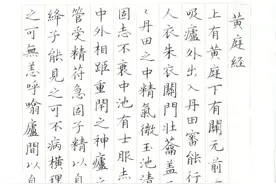 黄庭經
上有黄庭下有關元前
吸廬外出入丹田審能行
人衣朱衣關門壯籥蓋
丹田之中精氣微玉池清
固志不衰中池有士服赤
中外相距重閉之神廬
管受精符急固子精以自
絳子能見之可不病横理
之可無恙呼噏廬間以自